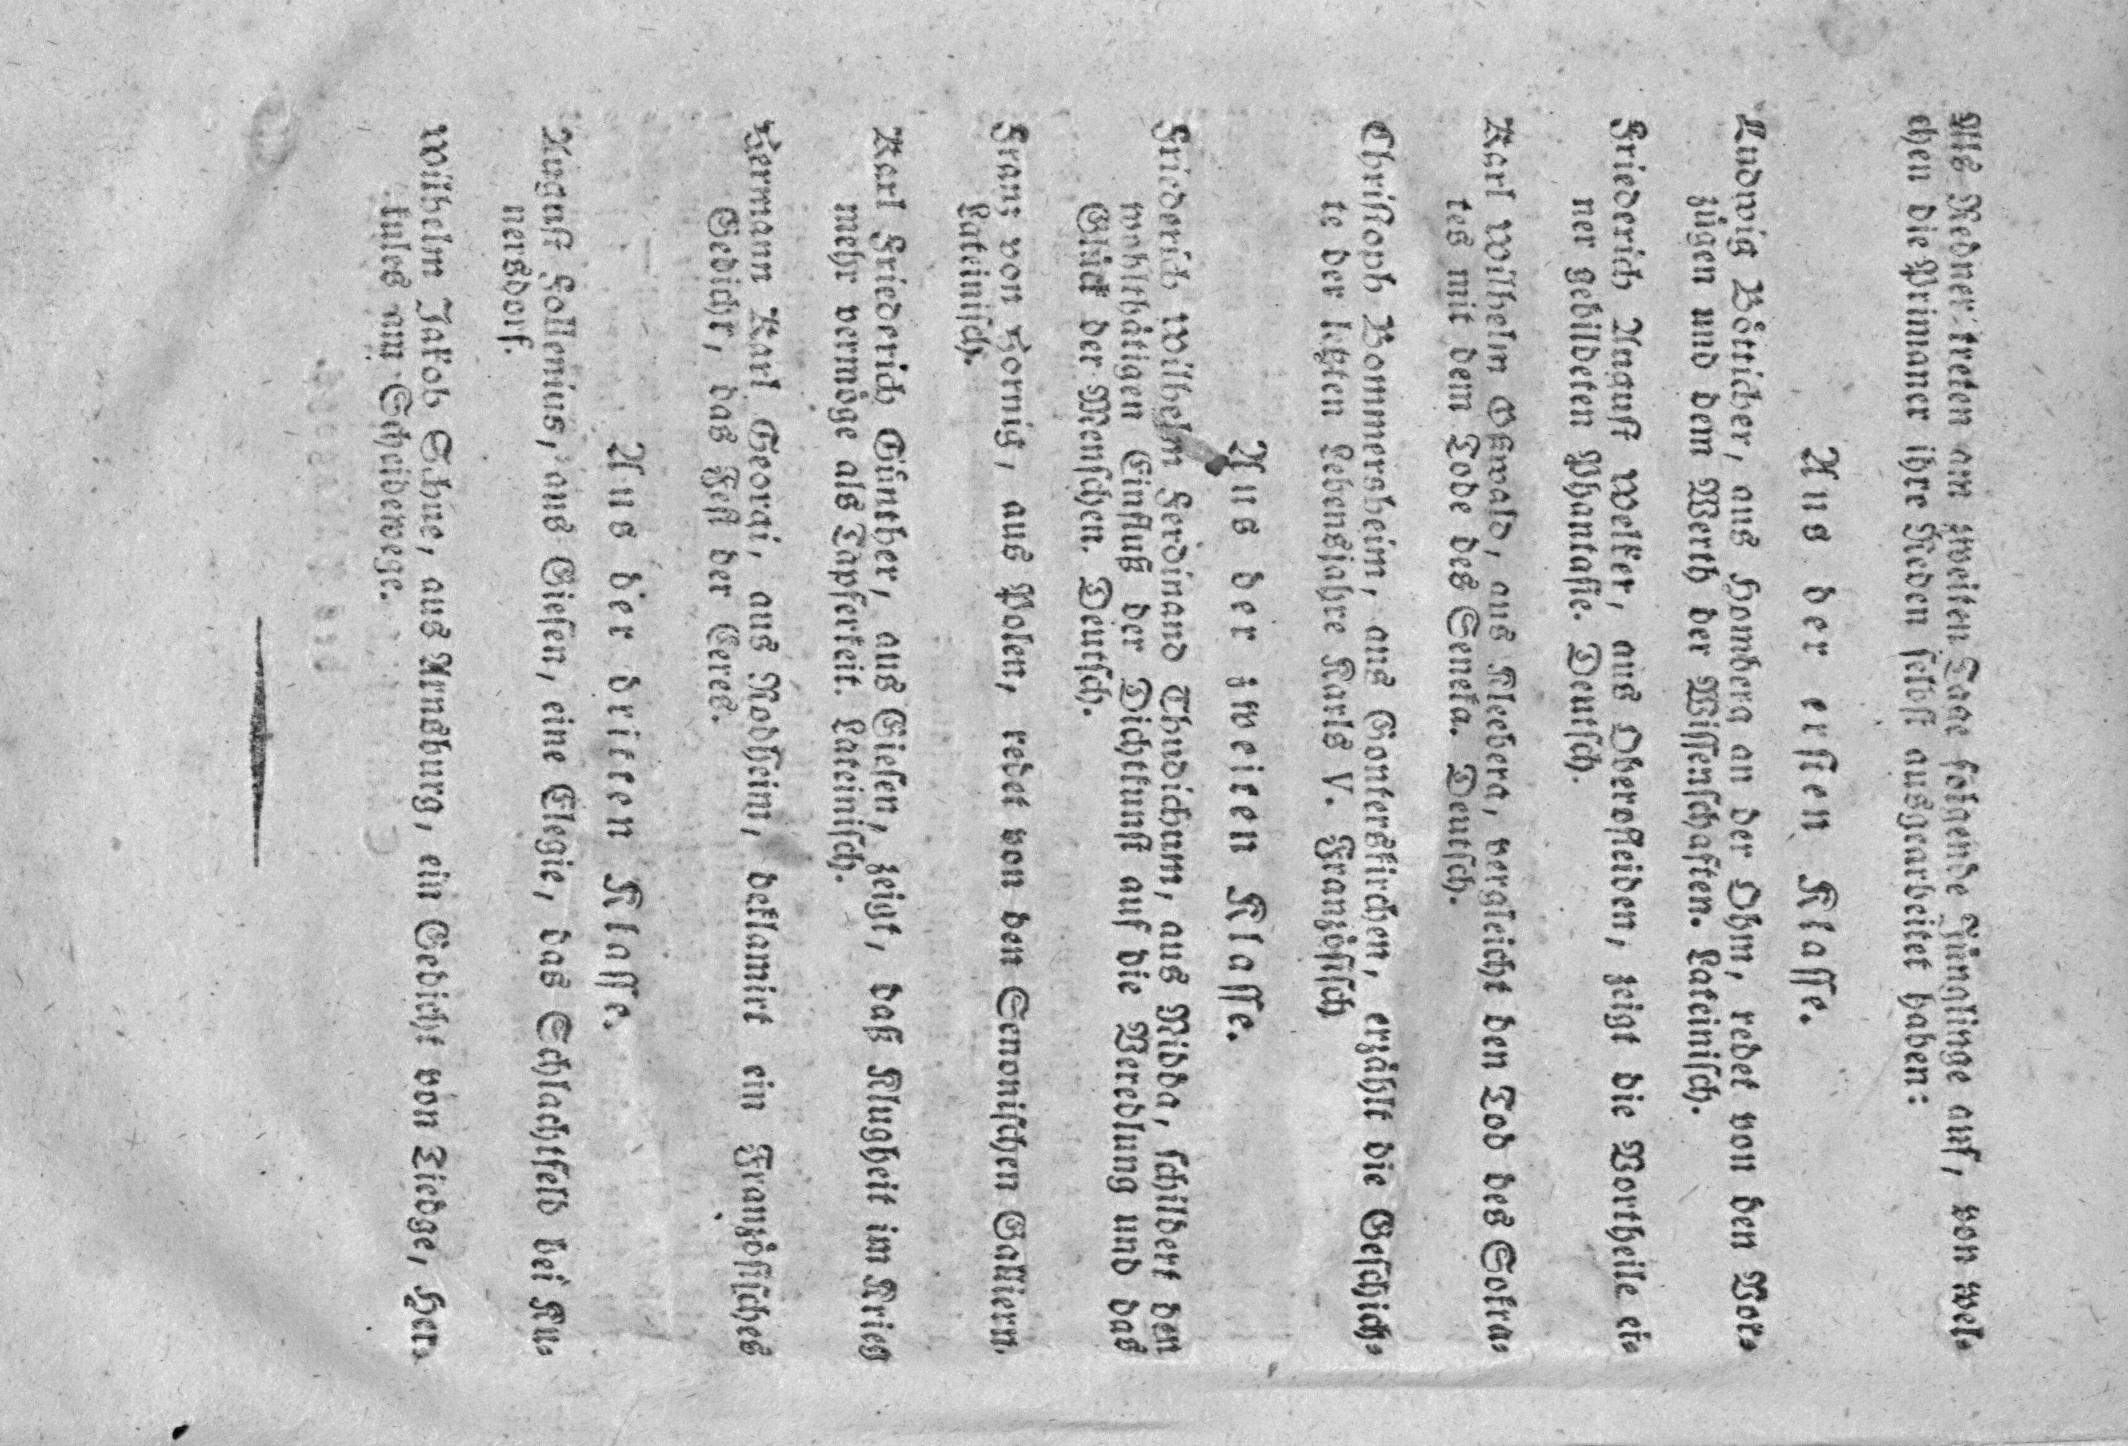 Als Redner treten am zweiten Tage folgende Jünglinge auf, von wel-
chen die Primaner ihre Reden selbst ausgearbeitet haben:
Aus der ersten Klasse.
Ludwig Bötticher, aus Homberg an der Ohm, redet von den Vor-
zügen und dem Werth der Wissenschaften. Lateinisch.
Friederich August Welker, aus Oberofleiden, zeigt die Vortheile ei-
ner gebildeten Phantasie. Deutsch.
Karl Wilhelm Oswald, aus Kleeberg, vergleicht den Tod des Sokra-
tes mit dem Tode des Seneka. Deutsch.
Christoph Bommersheim, aus Gonterskirchen, erzählt die Geschich-
te der letzten Lebensjahre Karls V. Französisch
Aus der zweiten Klasse.
Friederich Wilhelm Ferdinand Thudichum, aus Nidda, schildert den
wohlthätigen Einfluß der Dichtkunst auf die Veredlung und das
Glück der Menschen. Deutsch.
Franz von Hornig, aus Polen, redet von den Senonischen Galliern.
Lateinisch.
Karl Friederich Günther, aus Giesen, zeigt, daß Klugheit im Krieg
mehr vermöge als Tapferkeit. Lateinisch.
Hermann Karl Georgi, aus Rodheim, deklamirt ein Französisches
Gedicht, das Fest der Ceres.
Aus der dritten Klasse.
August Follenius, aus Giesen, eine Elegie, das Schlachtfeld bei Ku-
nersdorf.
Wilhelm Jakob Schue, aus Arnsburg, ein Gedicht von Tiedge, Her-
kules am Scheidewege.